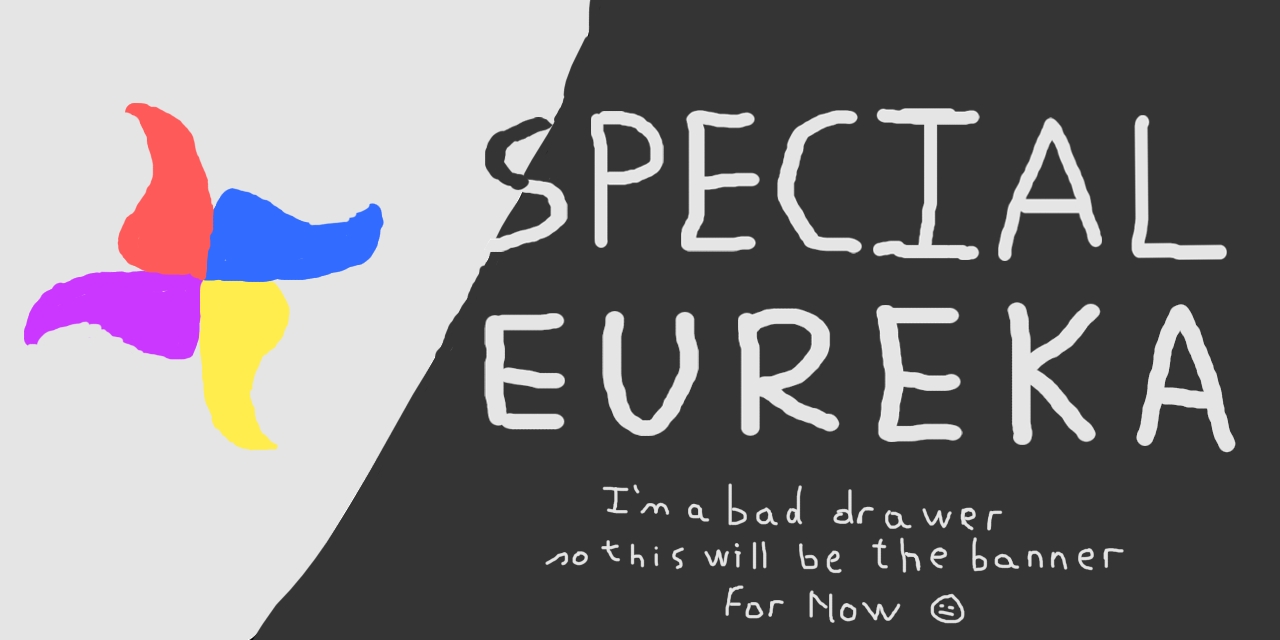 SPECIAL
EUREKA
I'm a bad drawer
so this will be the banner
For Now